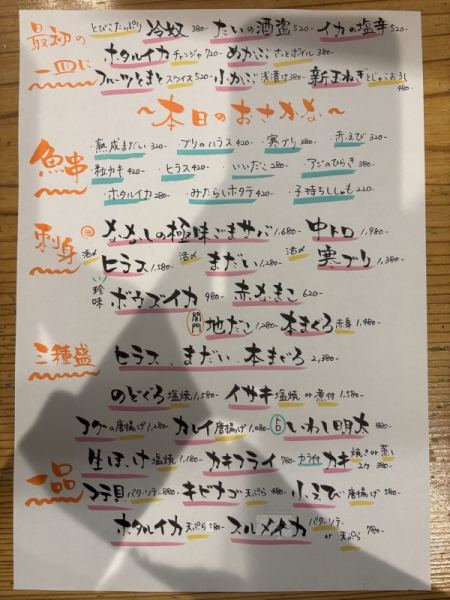 最初の一皿に
とびこたっぷり 冷奴 380- たいの酒盗 520- イカの塩辛 520-
ホタルイカ チャンジャ 720- めかぶ さっとボイル 380-
フルーツとまと スライス 520- 小かぶ 浅漬け 380- 新玉ねぎ とじゃこおろし 480-
〜本日のおさかな〜
魚串
・熟成まだい 320- ・ブリのハラス 420- ・寒ブリ 380- ・赤えび 320-
・粒カキ 420- ・ヒラス 420- ・いいだこ 280- ・アジのひらき 380-
・ホタルイカ 280- ・みたらしホタテ 420- ・子持ちししゃも 220-
刺身
ななしの極味ごまサバ 1,680- 中トロ 1,980-
活〆 ヒラス 1,580- 活〆 まだい 1,280- 活〆 寒ブリ 1,380-
珍味 ボウズイカ 980- 赤なまこ 620-
関門 地だこ 1,280- 本まぐろ 赤身 1,480-
三種盛 ヒラス、まだい、本まぐろ 2,380-
一品
のどぐろ 塩焼 1,580- イサキ 塩焼 or 煮付 1,580-
コチの唐揚げ 1,280- カレイ 唐揚げ 1,080- いわし明太 880-
生ほっけ 塩焼 1,180- カキフライ 780- カラ付カキ 焼き or 蒸し 2ヶ 580-
コテ貝 バターソテー 880- キビナゴ 天ぷら 480- 小えび 唐揚げ 580-
ホタルイカ 天ぷら 580- スルメイカ バターソテー or 天ぷら 780-